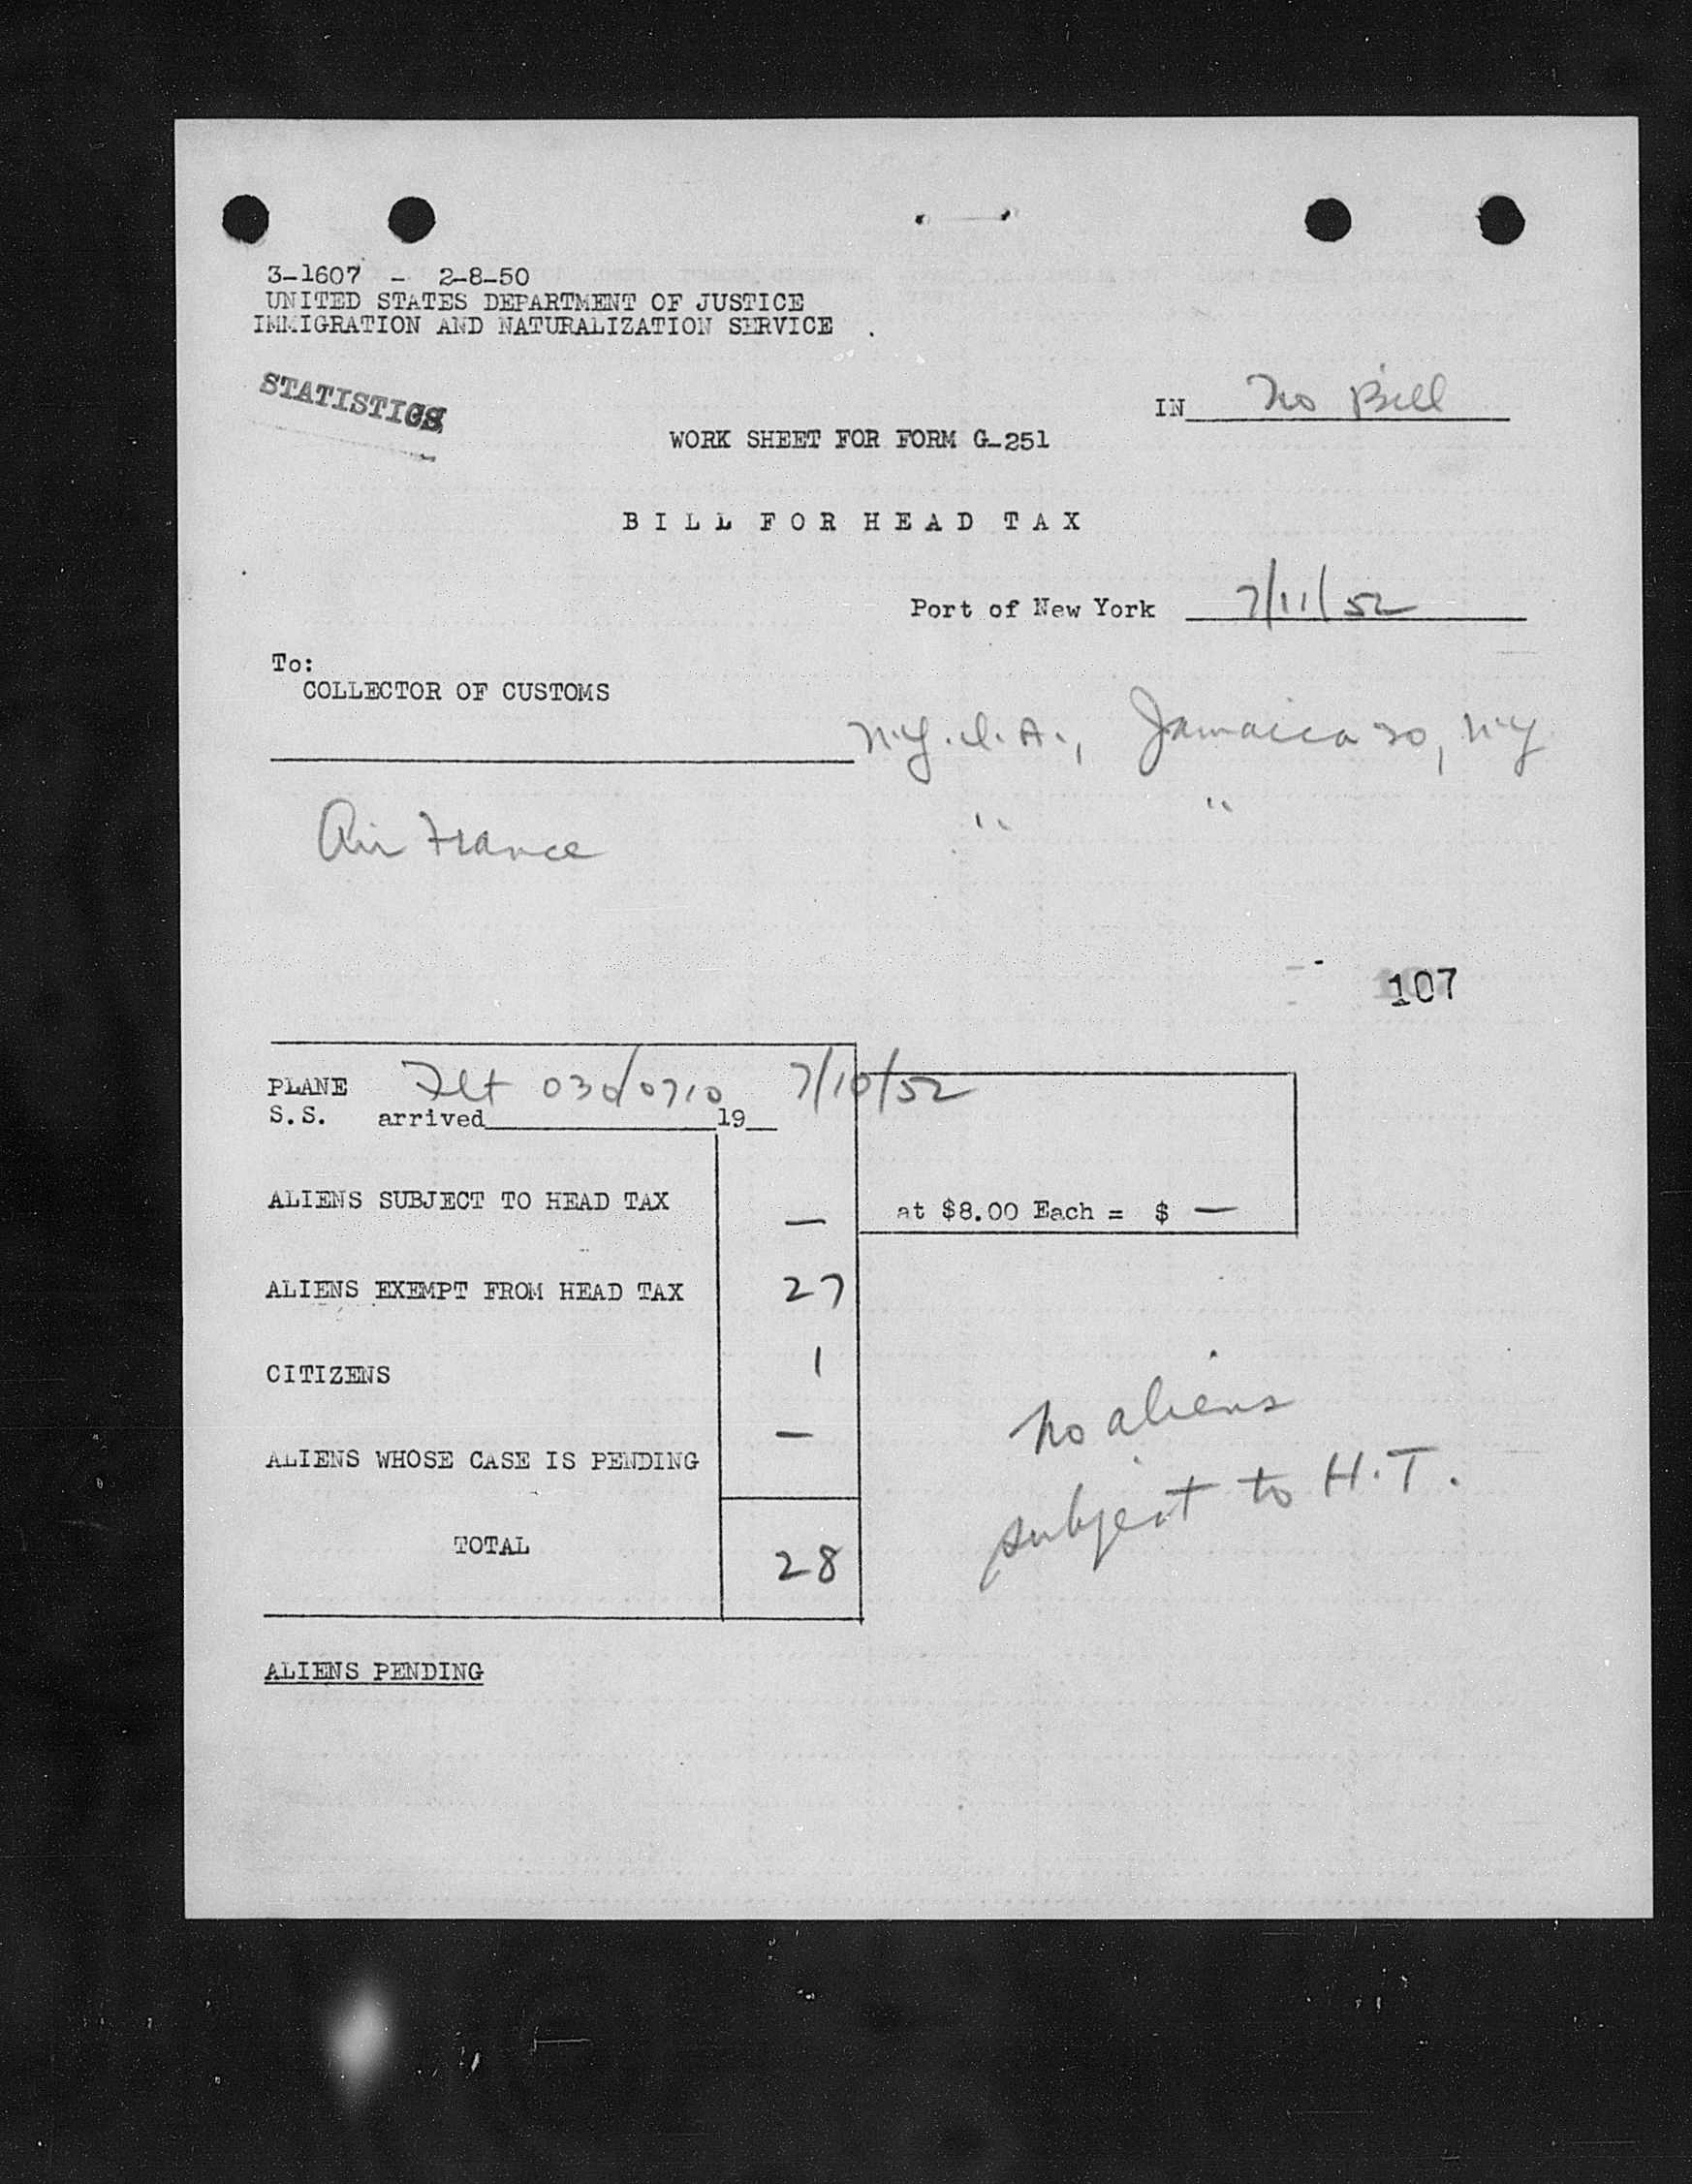 3-1607 - 2-8-50
UNITED STATES DEPARTMENT OF JUSTICE
IMMIGRATION AND NATURALIZATION SERVICE
STATISTICS
IN No Bill
WORK SHEET FOR FORM G-251
BILL FOR HEAD TAX
Port of New York 7/11/52
To:
COLLECTOR OF CUSTOMS
N.Y.I.A., Jamaica 30, N.Y
Air France " "
107
PLANE Flt 030/0710 7/10/52
S.S. arrived 19
ALIENS SUBJECT TO HEAD TAX — at $8.00 Each = $ —
ALIENS EXEMPT FROM HEAD TAX 27
CITIZENS 1
ALIENS WHOSE CASE IS PENDING —
No aliens
subject to H.T.
TOTAL 28
ALIENS PENDING